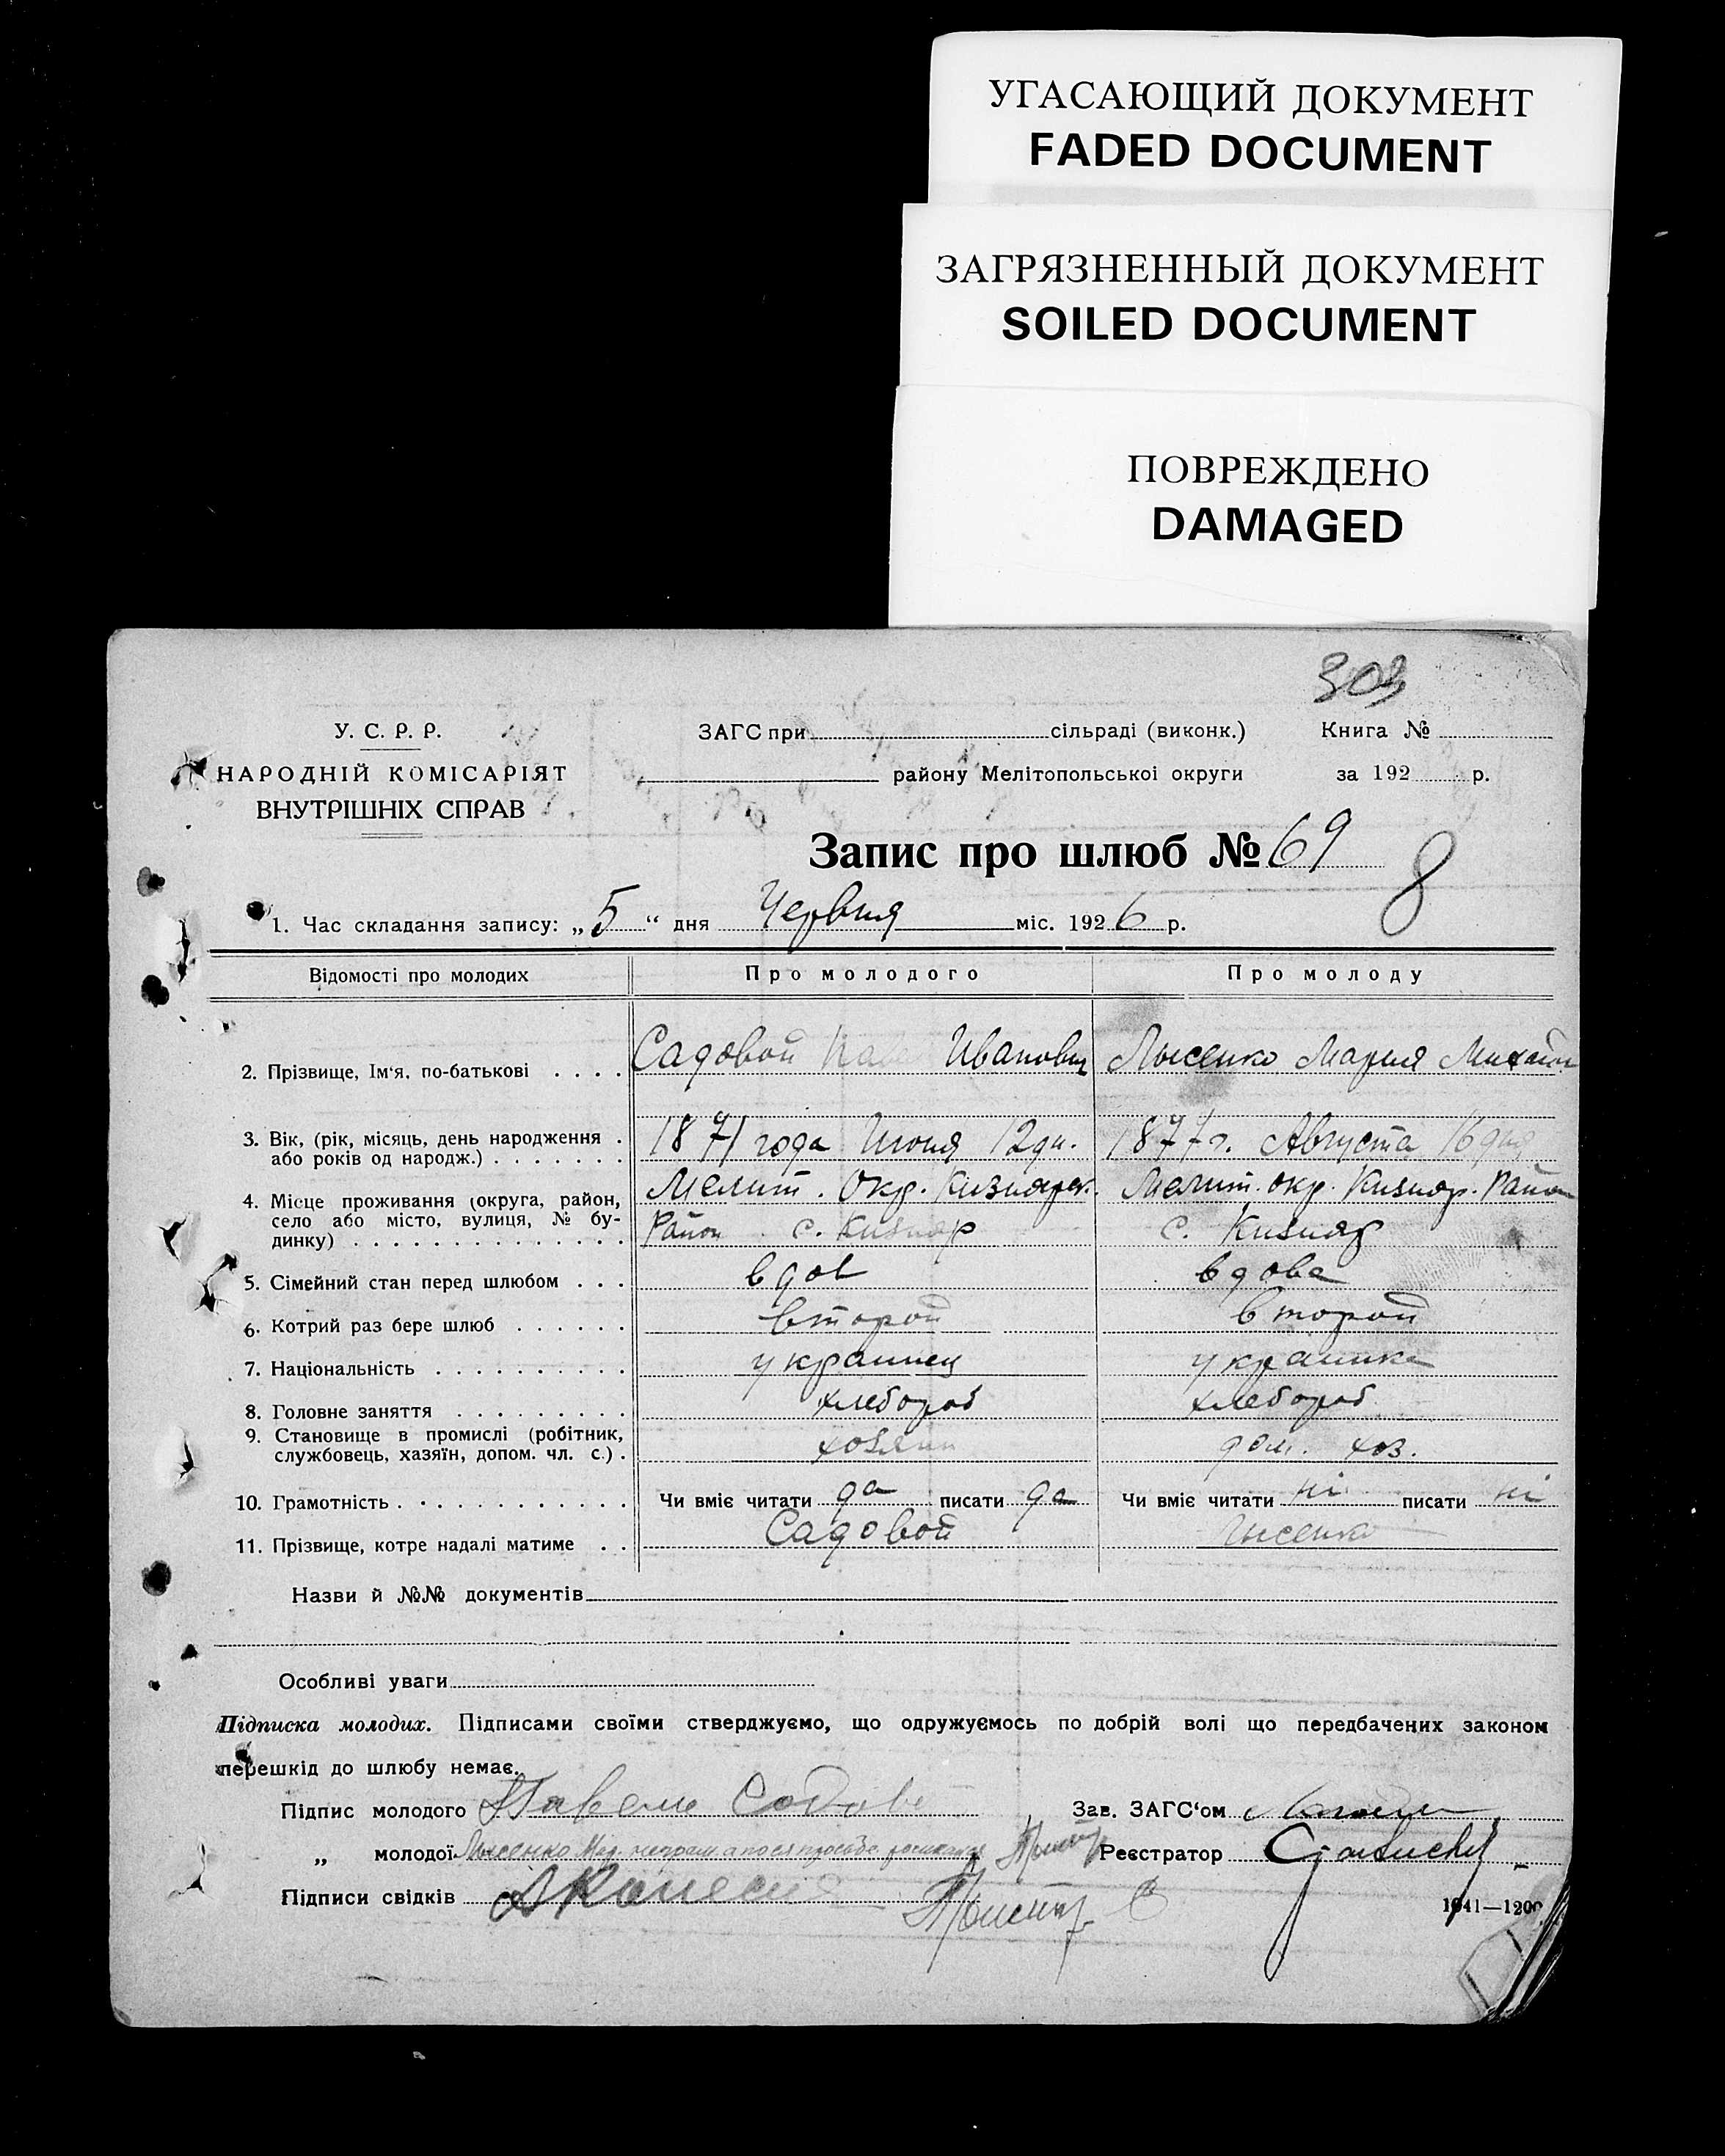 УГАСАЮЩИЙ ДОКУМЕНТ
FADED DOCUMENT
ЗАГРЯЗНЕННЫЙ ДОКУМЕНТ
SOILED DOCUMENT
ПОВРЕЖДЕНО
DAMAGED
303
У. С. Р. Р.
НАРОДНІЙ КОМІСАРІЯТ
ВНУТРІШНІХ СПРАВ
ЗАГС при сільраді (виконк.) Книга №
району Мелітопольської округи за 192 р.
Запис про шлюб № 69
8
1. Час складання запису: „5“ дня Червня міс. 1926 р.
Відомості про молодих Про молодого Про молоду
2. Прізвище, Ім'я, по-батькові Садовой Иванович Лысенко Мария
3. Вік, (рік, місяць, день народження або років од народж.) 1871 года Июня 12 дн. 1877 г. Августа 16 дня
4. Місце проживання (округа, район, село або місто, вулиця, № будинку) Мелит. Окр. Кизиярск. Район с. Кизияр Мелит. окр. Кизияр. Район с. Кизияр
5. Сімейний стан перед шлюбом вдов вдова
6. Котрий раз бере шлюб второй второй
7. Національність украинец украинка
8. Головне заняття хлебороб хлебороб
9. Становище в промислі (робітник, службовець, хазяїн, допом. чл. с.) хозяин дом. хоз.
10. Грамотність Чи вміє читати да писати да Чи вміє читати ні писати ні
11. Прізвище, котре надалі матиме Садовой Лысенко
Назви й №№ документів
Особливі уваги
Підписка молодих. Підписами своїми стверджуємо, що одружуємось по добрій волі що передбачених законом
перешкід до шлюбу немає.
Підпис молодого Павель Зав. ЗАГС'ом
„ молодої Лысенко Мар. Реєстратор
Підписи свідків
1941—1200